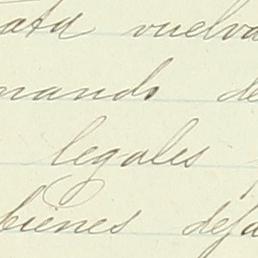 ata vuelva
mando de
legales
bienes deja